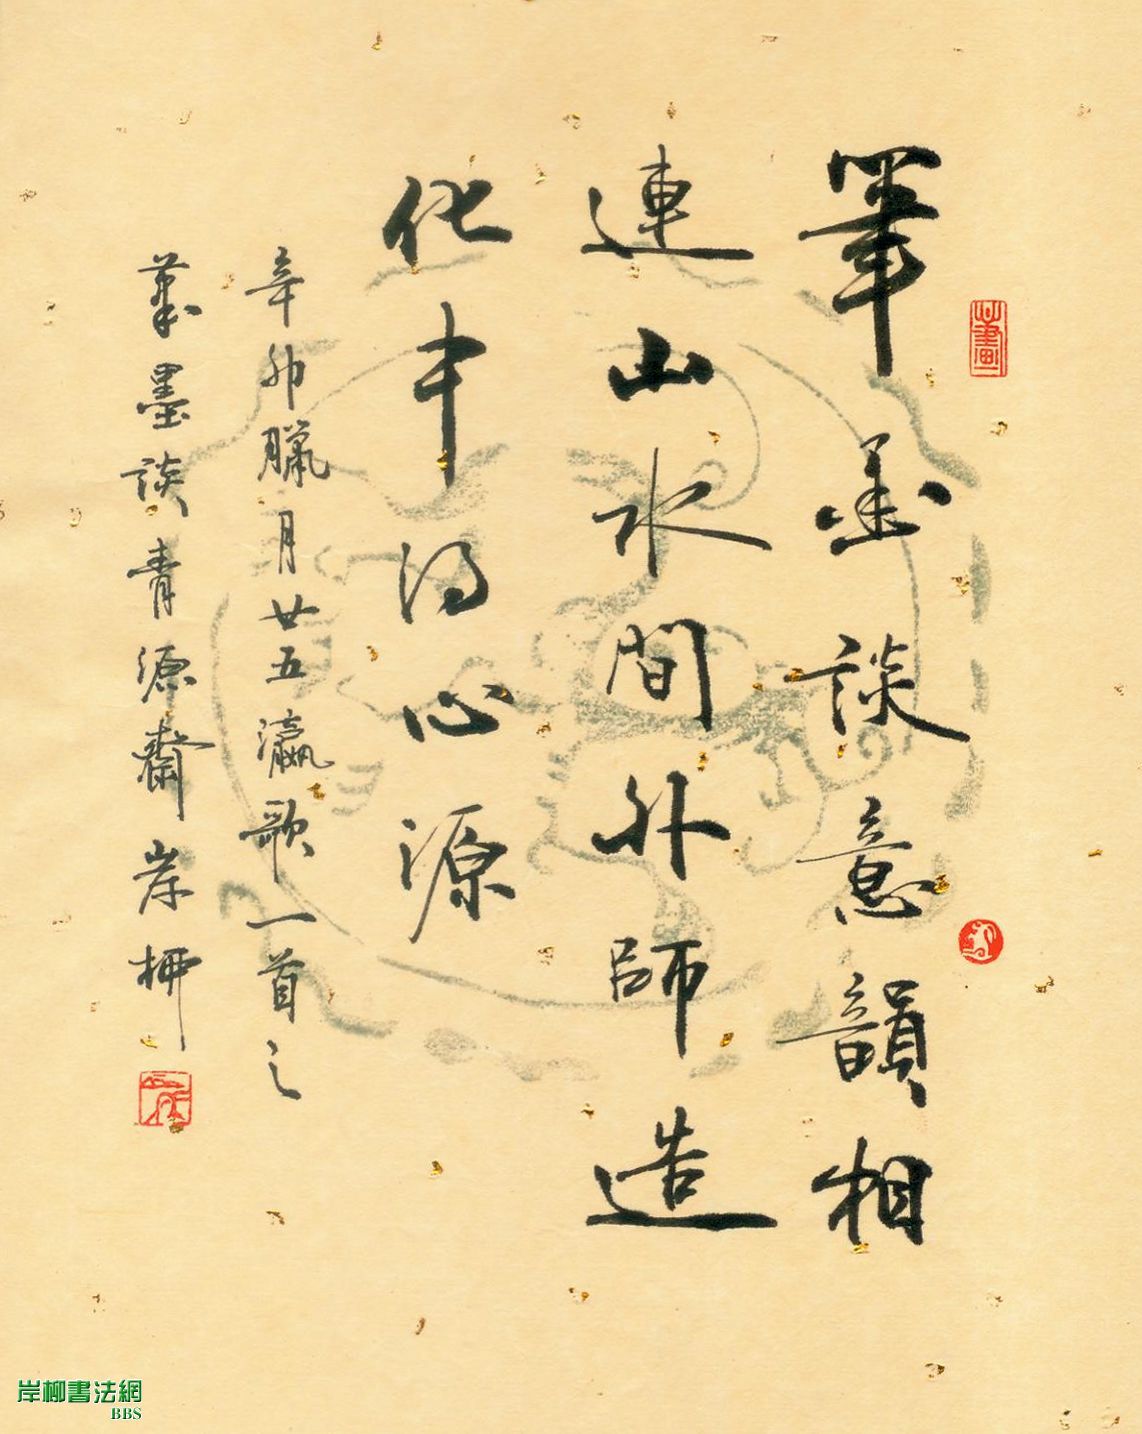 筆墨談意韻相
連山水間外師造
化中得心源
辛卯臘月廿五瀛歌一首之
筆墨談青源齋岸柳
岸柳書法網
BBS